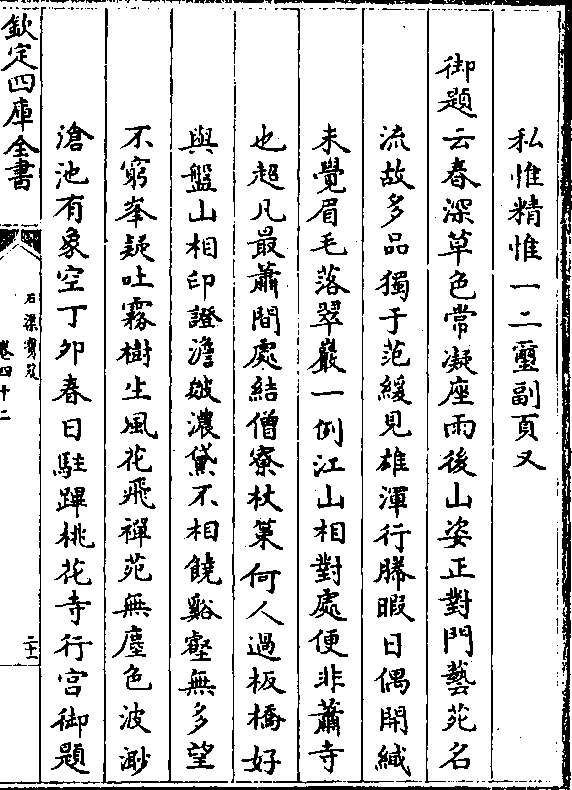 私惟精惟一二璽副頁又
御題云春深草色常凝座雨後山姿正對門藝苑名
流故多品獨于范緩見雄渾行勝暇日偶開緘
未覺眉毛落翠巖一例江山相對處便非蕭寺
也超凡最蕭間處結僧寮杖策何人過板橋好
與盤山相印證澹皴濃黛不相饒谿壑無多望
不窮峯疑吐霧樹生風花飛禪苑無塵色波渺
滄池有象空丁卯春日駐蹕桃花寺行宫御題
欽定四庫全書
石渠寳笈
卷四十二
二十一